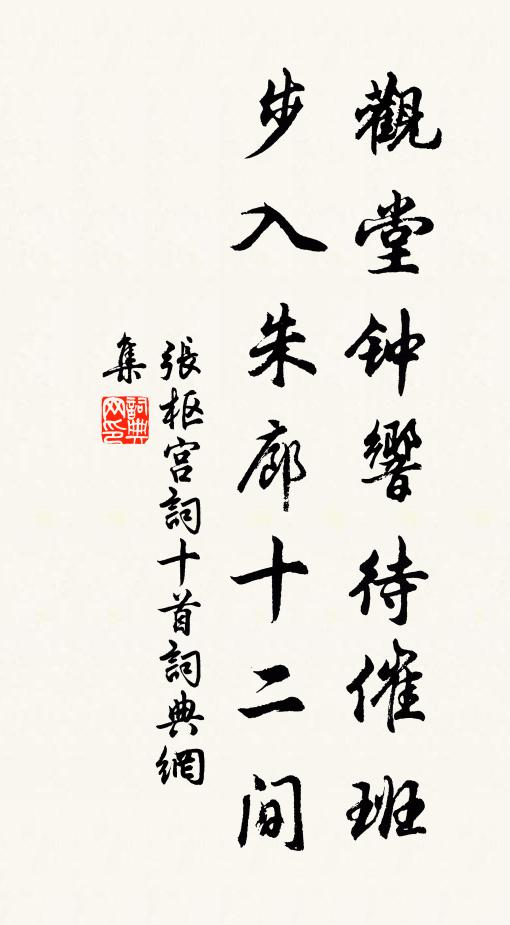 觀堂钟響待催班
步入朱廊十二间
張枢宫詞十首詞典網
集
詞典
网印